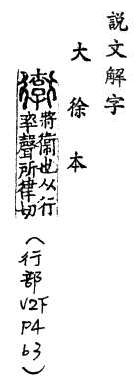 説文解字
大徐本
將衛也从行
率聲所律切
（行部
V2下
P4
b3）